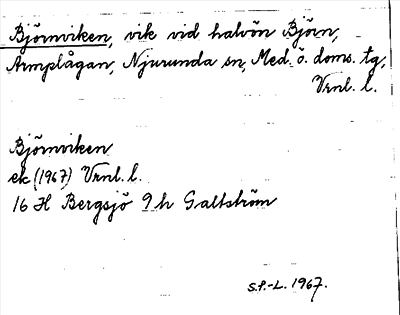 Björnviken, vik vid halvön Björn,
Armplågan, Njurunda sn, Med. ö. doms. tg,
Vrnl. l.
Björnviken
ek (1967) Vrnl. l.
16 H Bergsjö 9 h Galtström
S.F.-L. 1967.